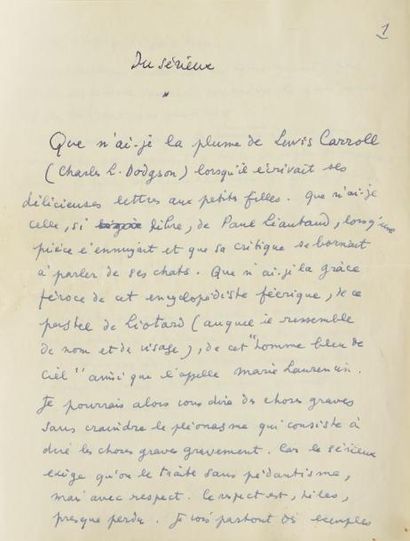 1
Du sérieux
*
Que n'ai-je la plume de Lewis Carroll
(Charles L. Dodgson) lorsqu'il écrivait ses
délicieuses lettres aux petites filles. Que n'ai-je
celle, si libre, de Paul Léautaud, lorsqu'une
pièce l'ennuyait et que sa critique se bornait
à parler de ses chats. Que n'ai-je la grâce
féroce de cet encyclopédiste féerique, de ce
pastel de Liotard (auquel il ressemble
de nom et de visage), de cet "homme bleu de
ciel" ainsi que l'appelle Marie Laurencin.
Je pourrais alors vous dire des choses graves
sans craindre le pléonasme qui consiste à
dire les choses graves gravement. Car le sérieux
exige qu'on le traite sans pédantisme,
mais avec respect. Ce respect est, hélas,
presque perdu. Je vois partout des exemples